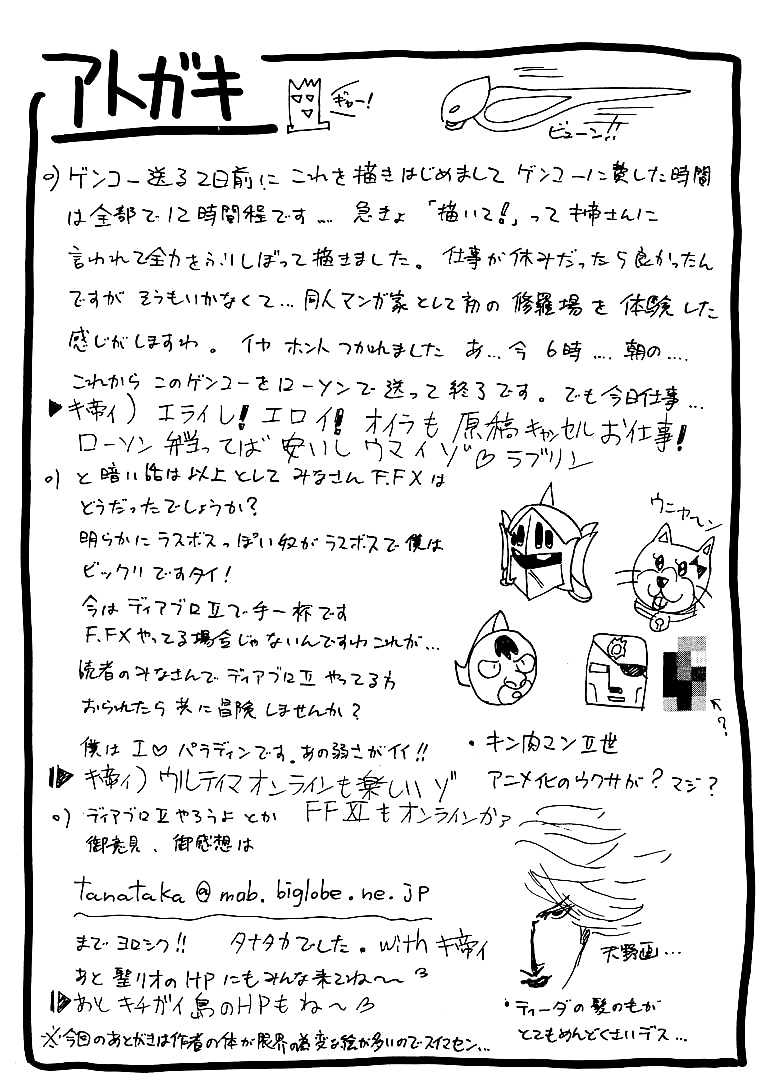 アトガキ
ギャー!
ビューン!!
o) ゲンコー送る2日前に これを描きはじめまして ゲンコーに費した時間
は全部で12時間程です… 急きょ 「描いて!」って キ帝さんに
言われて全力をふりしぼって描きました。 仕事が休みだったら良かったん
ですが そうもいかなくて… 同人マンガ家として初の 修羅場を 体験した
感じがしますわ。 イヤ ホント つかれました あ… 今 6時…. 朝の….
これから このゲンコーをローソンで 送って 終了です。 でも今日仕事…
▶キ帝ィ) エライし! エロイ! オイラも 原稿キャンセルお仕事!
ローソン 弁当ってば 安いし ウマイゾ♡ ラブリン
o) と 暗い話は以上として みなさん F.FXは
どうだったでしょうか?
明らかに ラスボスっぽい奴が ラスボスで 僕は
ビックリ ですタイ!
今は ディアブロⅡで手一杯です
F.FXやってる場合じゃないんですわ これが…
読者のみなさんで ディアブロⅡ やってる方
おられたら 共に冒険 しませんか?
僕は I♡ パラディンです。あの弱さがイイ!!
▶キ帝ィ) ウルティマ オンラインも楽しいゾ
ウニャ〜ン
?
・キン肉マンⅡ世
アニメ化のウワサが? マジ?
o) ディアブロⅡやろうよ とか FFXIもオンラインか?
御意見、御感想は
tanataka@mob.biglobe.ne.jp
まで ヨロシク!! タナタカでした。with キ帝ィ
あと 聖リオのHPにもみんな来てね〜
▶あと キチガイ島のHPもね〜
天野画…
・ティーダの髪のもが
とてもめんどくさいデス…
※今回のあとがきは作者の体が限界の為変な絵が多いのでスイマセン…